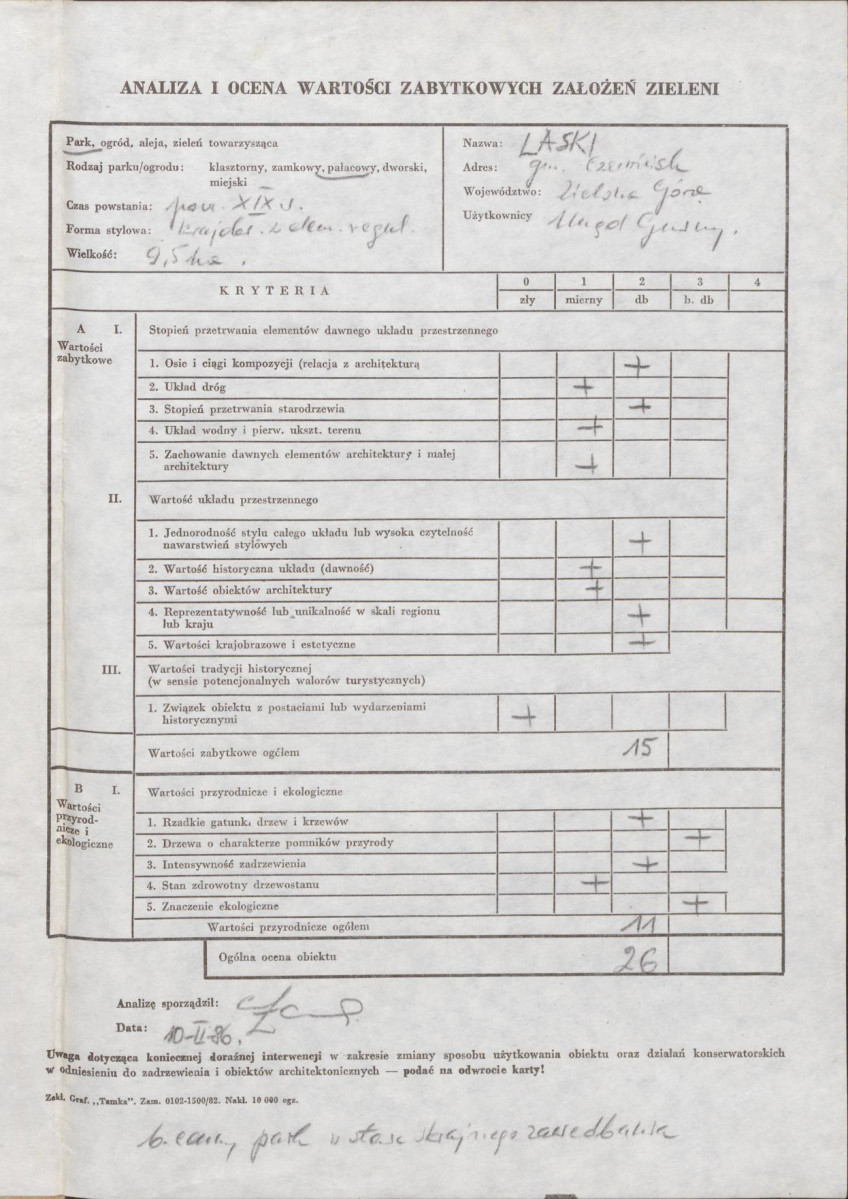 ANALIZA I OCENA WARTOŚCI ZABYTKOWYCH ZAŁOŻEŃ ZIELENI
Park, ogród, aleja, zieleń towarzysząca
Rodzaj parku/ogrodu: klasztorny, zamkowy, pałacowy, dworski,
miejski
Czas powstania: XIX w.
Forma stylowa: krajobr. z elem. regul.
Wielkość: 9,5 ha.
Nazwa: LASKI
Adres: gm. Czerwieńsk
Województwo: Zielona Góra
Użytkownicy Urząd Gminy.
KRYTERIA
0 1 2 3 4
zły mierny db b. db
A I. Stopień przetrwania elementów dawnego układu przestrzennego
Wartości
zabytkowe
1. Osie i ciągi kompozycji (relacja z architekturą +
2. Układ dróg +
3. Stopień przetrwania starodrzewia +
4. Układ wodny i pierw. ukszt. terenu +
5. Zachowanie dawnych elementów architektury i małej
architektury +
II. Wartość układu przestrzennego
1. Jednorodność stylu całego układu lub wysoka czytelność
nawarstwień stylowych +
2. Wartość historyczna układu (dawność) +
3. Wartość obiektów architektury +
4. Reprezentatywność lub unikalność w skali regionu
lub kraju +
5. Wartości krajobrazowe i estetyczne +
III. Wartości tradycji historycznej
(w sensie potencjonalnych walorów turystycznych)
1. Związek obiektu z postaciami lub wydarzeniami
historycznymi +
Wartości zabytkowe ogółem 15
B I. Wartości przyrodnicze i ekologiczne
Wartości
przyrod-
nicze i
ekologiczne
1. Rzadkie gatunki drzew i krzewów +
2. Drzewa o charakterze pomników przyrody +
3. Intensywność zadrzewienia +
4. Stan zdrowotny drzewostanu +
5. Znaczenie ekologiczne +
Wartości przyrodnicze ogółem 11
Ogólna ocena obiektu 26
Analizę sporządził:
Data: 10-II-86.
Uwaga dotycząca koniecznej doraźnej interwencji w zakresie zmiany sposobu użytkowania obiektu oraz działań konserwatorskich
w odniesieniu do zadrzewienia i obiektów architektonicznych — podać na odwrocie karty!
Zakł. Graf. „Tamka". Zam. 0102-1500/82. Nakł. 10 000 egz.
b. cenny park w stanie skrajnego zaniedbania